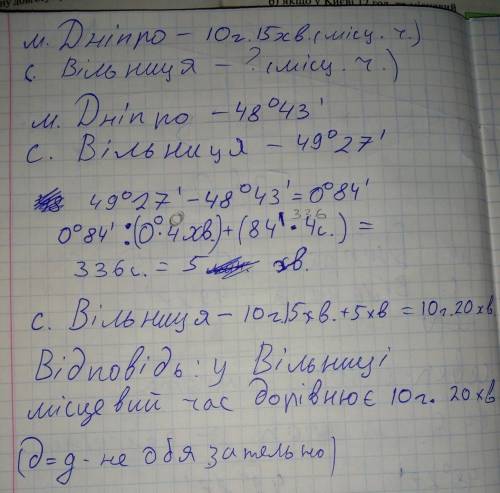 м. Дніпро – 10г. 15хв. (місц. ч.)
с. Вільниця – ? (місц. ч.)
м. Дніпро – 48°43'
с. Вільниця – 49°27'
49°27' – 48°43' = 0°84'
336
0°84' : (0°·4хв.) + (84'·4с.) =
336с. = 5 хв.
с. Вільниця – 10г.15хв. + 5хв = 10г.20хв
Відповідь: у Вільниці
місцевий час дорівнює 10г. 20хв
(д = g - не обязательно)